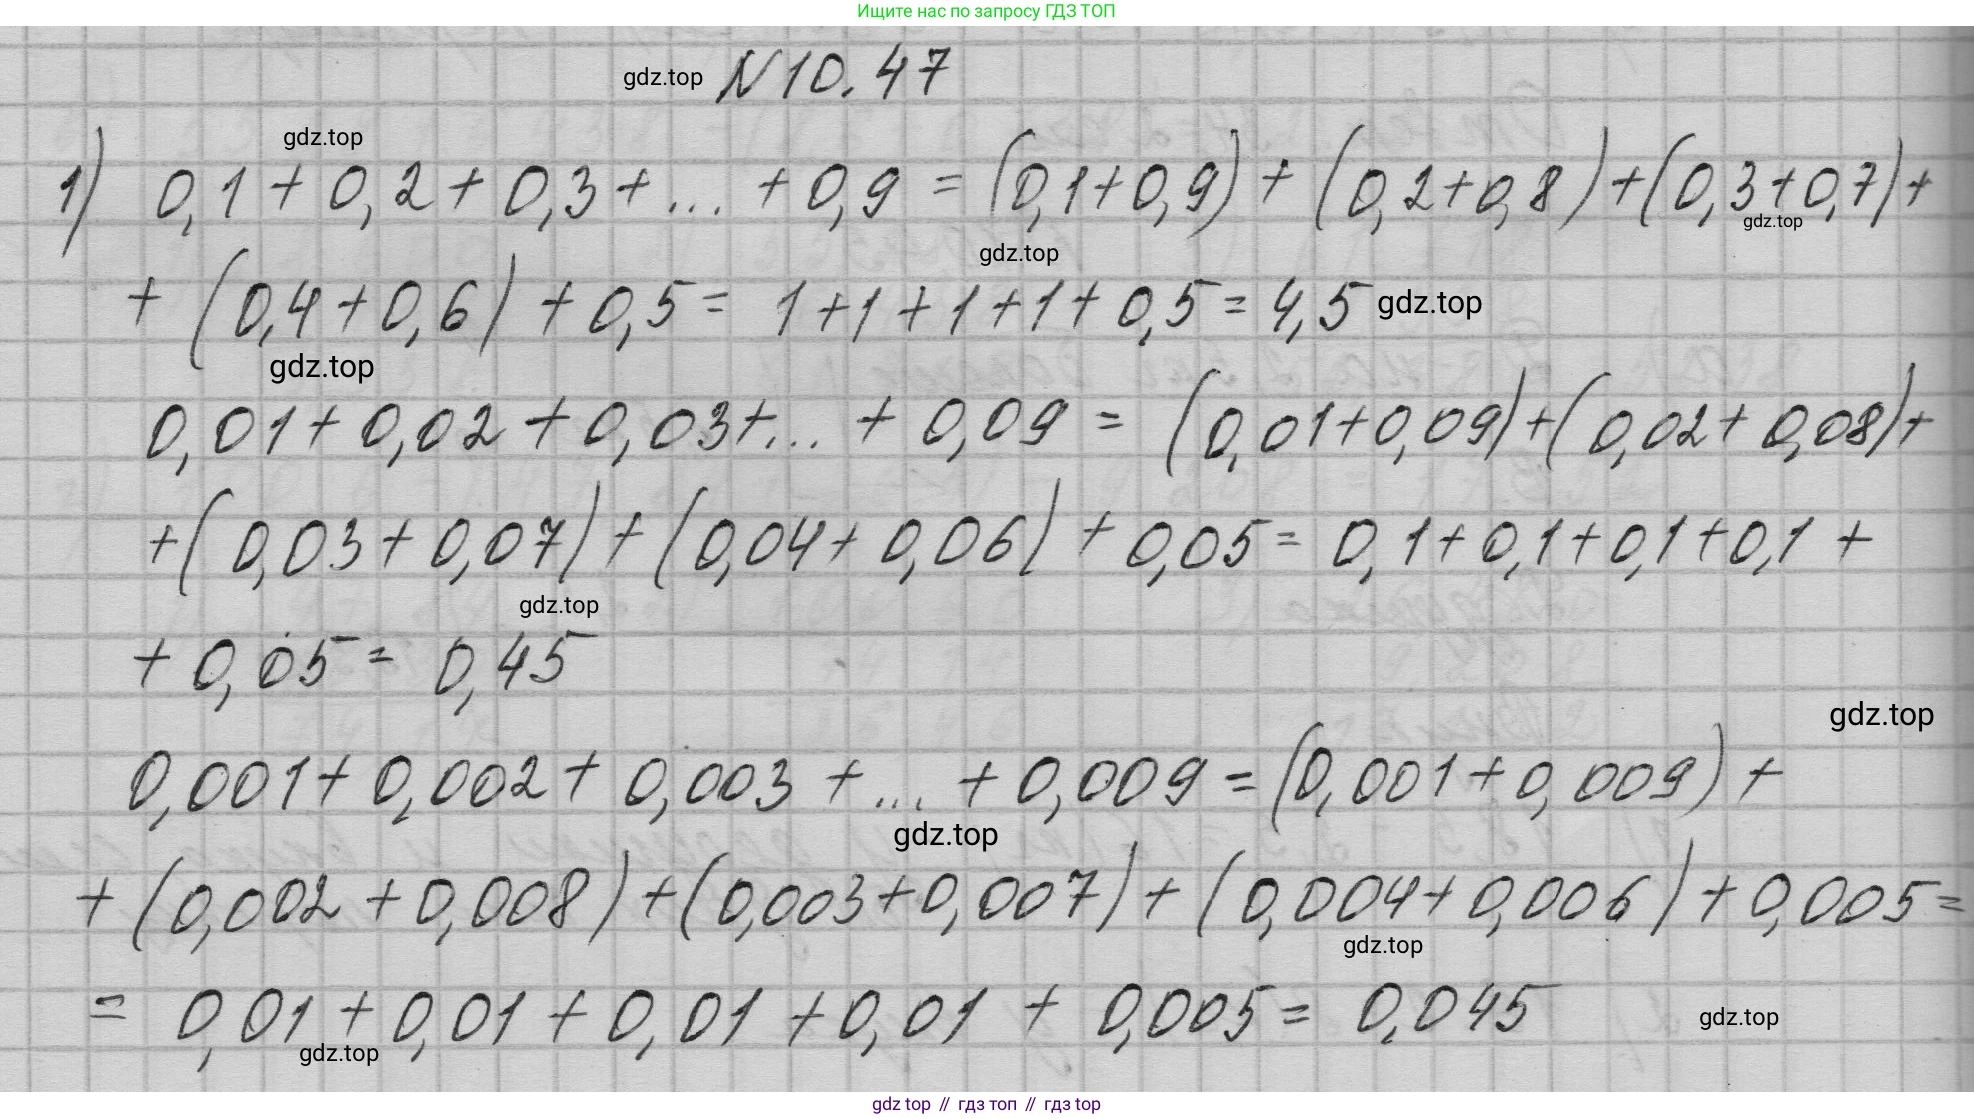 Ищите нас по запросу ГДЗ ТОП
gdz.top N10.47
gdz.top
1) 0,1 + 0,2 + 0,3 + ... + 0,9 = (0,1+0,9) + (0,2+0,8) + (0,3+0,7) +
gdz.top
gdz.top
+ (0,4+0,6) + 0,5 = 1+1+1+1+0,5 = 4,5 gdz.top
gdz.top
0,01 + 0,02 + 0,03 + ... + 0,09 = (0,01+0,09) + (0,02+0,08) +
+ (0,03+0,07) + (0,04+0,06) + 0,05 = 0,1+0,1+0,1+0,1 +
gdz.top
+ 0,05 = 0,45
gdz.top
0,001 + 0,002 + 0,003 + ... + 0,009 = (0,001+0,009) +
gdz.top
+ (0,002+0,008) + (0,003+0,007) + (0,004+0,006) + 0,005 =
gdz.top
= 0,01 + 0,01 + 0,01 + 0,01 + 0,005 = 0,045
gdz.top
gdz.top
gdz top // гдз топ // гдз top